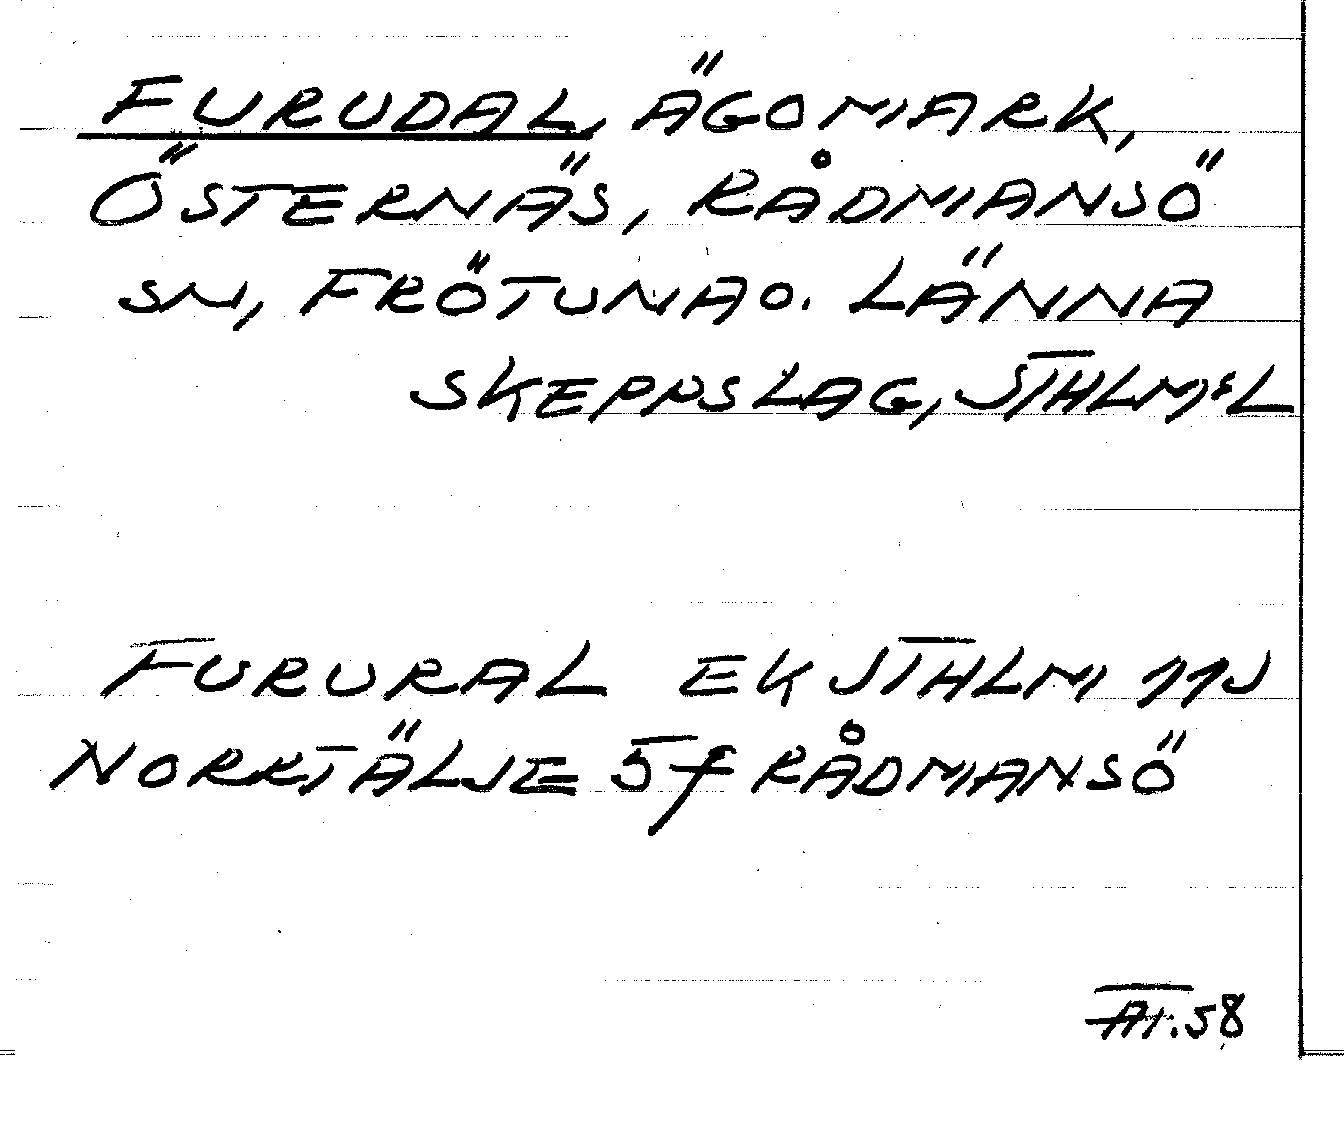 FURUDAL, ÄGOMARK,
ÖSTERNÄS, RÅDMANSÖ
SN, FRÖTUNA O. LÄNNA
SKEPPSLAG, STHLMSL
FURURAL EK STHLM 11J
NORRTÄLJE 5f RÅDMANSÖ
58